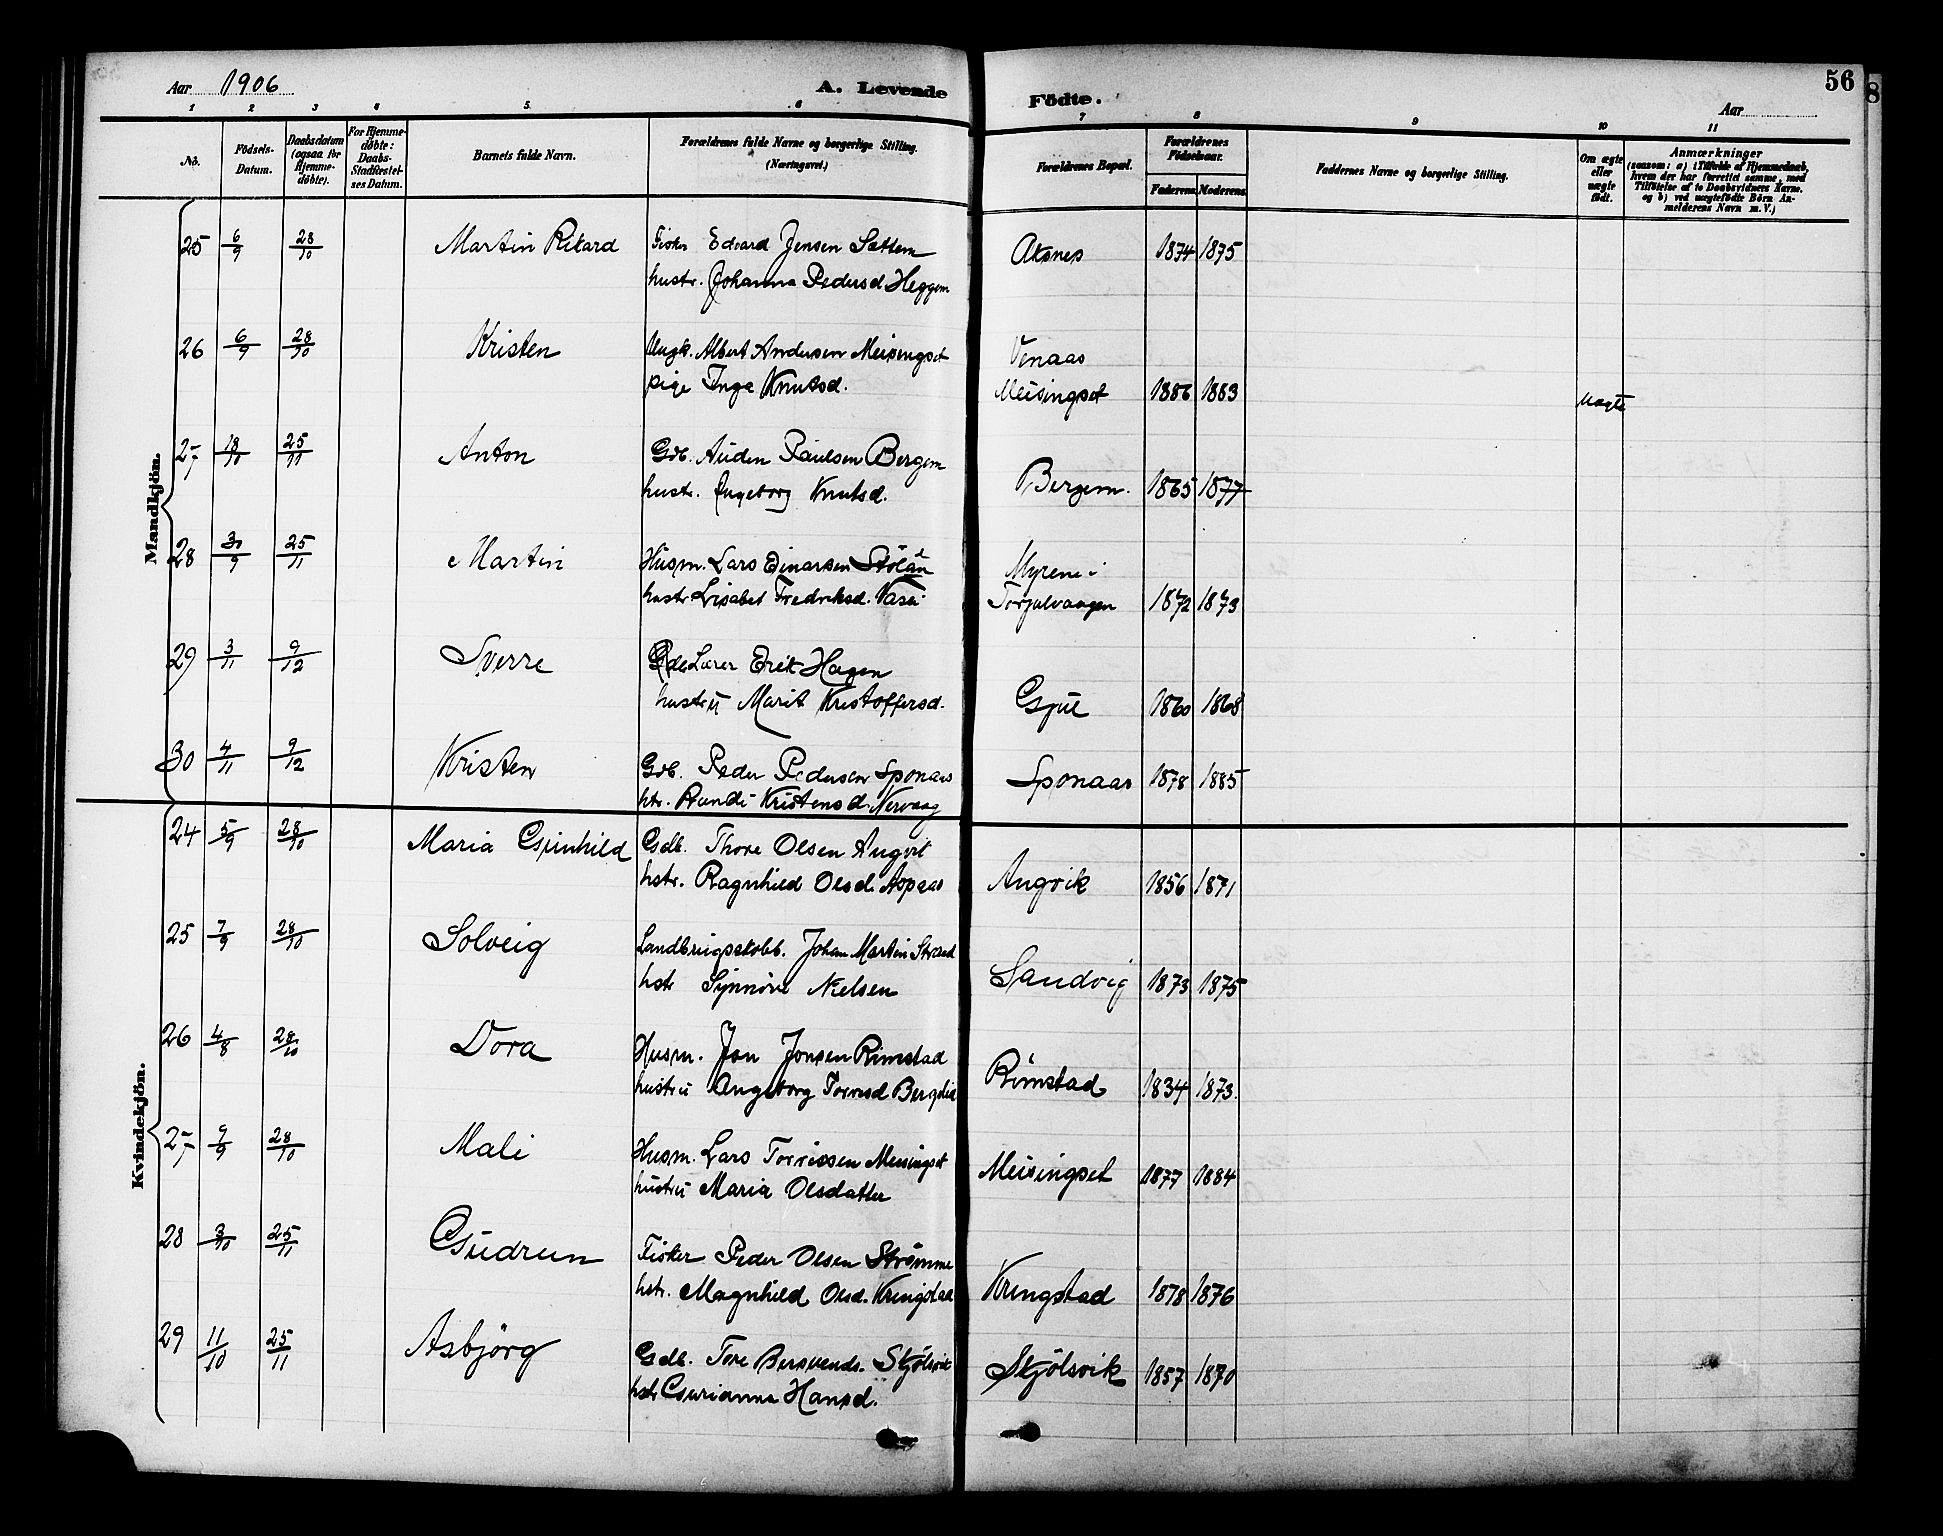 Aar 1906
A. Levende
Födte.
56
8
Aar
1 2 3 4 5. 6 7 8 9 10 11
No. Födsels-Datum. Daabsdatum (ogsaa for Hjemme-döbte). For Hjemme-döbte: Daabs-Stadfæstel-ses Datum. Barnets fulde Navn. Forældrenes fulde Navne og borgerlige Stilling. (Næringsvei.) Forældrenes Bopæl. Forældrenes Födselsaar. Faderens. Moderens. Faddernes Navne og borgerlige Stilling. Om ægte eller uægte födt. Anmærkninger (saasom: a) i Tilfælde af Hjemmedaab, hvem der har forrettet samme, med Tilföielse af to Daabsvidners Navne, og b) ved uægtefödte Börn An-melderens Navn m. V.)
Mandkjön.
25 6/9 28/10 Martin Rikard Fisker Edvard Jensen Sættem Aksnes 1874 1875
hustr. Johanna Pedersd Heggem
26 6/9 28/10 Kristen Ungk. Albert Andersen Meisingset Venaas
pige Inga Knutsd. Meisingset 1886 1883 Uægte
27 18/10 25/11 Anton Gdb. Auden Paulsen Bergem
hustr. Ingeborg Knutsd. Bergem. 1865 1877
28 30/9 25/11 Martin Husm. Lars Einarsen Myrene i
hustr Lisabet Fredriksd. Torjulvaagen 1872 1873
29 3/11 9/12 Sverre Lærer Erik Hagen
hustru Marit Kristoffersd. Gjul 1860 1868
30 4/11 9/12 Kristen Gdb. Peder Pedersen Sponaas Sponaas 1878 1885
htr. Randi Kristensd. Nervaag
Kvindekjön.
24 5/9 28/10 Maria Gunhild Gdb. Thore Olsen Angvik
hstr. Ragnhild Olsd. Aspaas Angvik 1856 1871
25 7/9 28/10 Solveig Landbrugskolb. Johan Martin Strand
hstr Synnöve Nielsen Sandvig 1873 1875
26 4/8 28/10 Dora Husm. Jon Jonsen Rimstad
hustru Ingeborg Torresd Bergslid Rimstad 1834 1873.
27 9/9 28/10 Mali Husm. Lars Torrissen Meisingset
hustru Maria Olsdatter Meisingset 1877 1884
28 3/10 25/11 Gudrun Fisker Peder Olsen Strömme
hstr. Magnhild Olsd. Kringstad Kringstad 1878 1876
29 11/10 25/11 Asbjörg Gdb. Tore Bersvends. Skjölsvik Skjölsvik 1857 1870
hstr Gurianna Hansd.